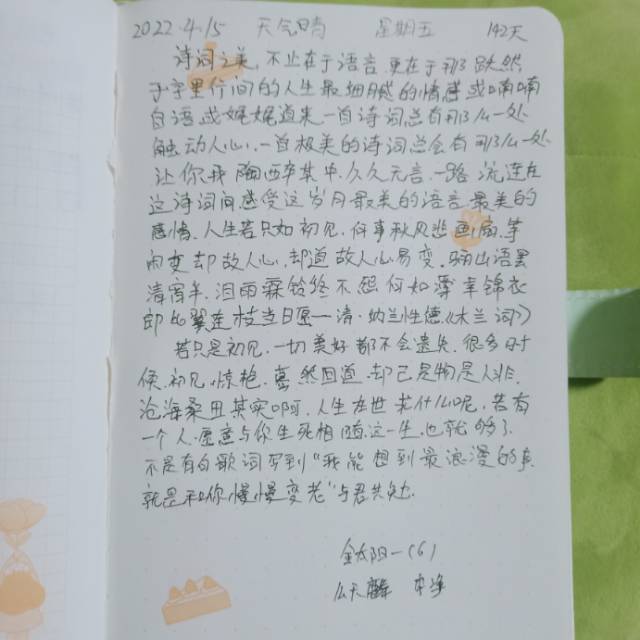 2022.4.15 天气晴 星期五 142天
诗词之美,不止在于语言,更在于那跃然
于字里行间的人生最细腻的情感或喃喃
自语或娓娓道来一首诗词总有那么一处
触动人心,一首极美的诗词总会有那么一处
让你我陶醉其中,久久无言,一路流连在
这诗词间感受这岁月最美的语言最美的
感情,人生若只如初见,何事秋风悲画扇,等
闲变却故人心,却道故人心易变,骊山语罢
清宵半,泪雨霖铃终不怨何如薄幸锦衣
郎比翼连枝当日愿一清·纳兰性德《木兰词》
若只是初见,一切美好都不会遗失,很多时
候,初见,惊艳,蓦然回首,却已是物是人非,
沧海桑田其实啊,人生在世求什么呢,若有
一个人愿意与你生死相随这一生也就够了,
不是有句歌词写到"我能想到最浪漫的事
就是和你慢慢变老"与君共处.
金太阳一(6)